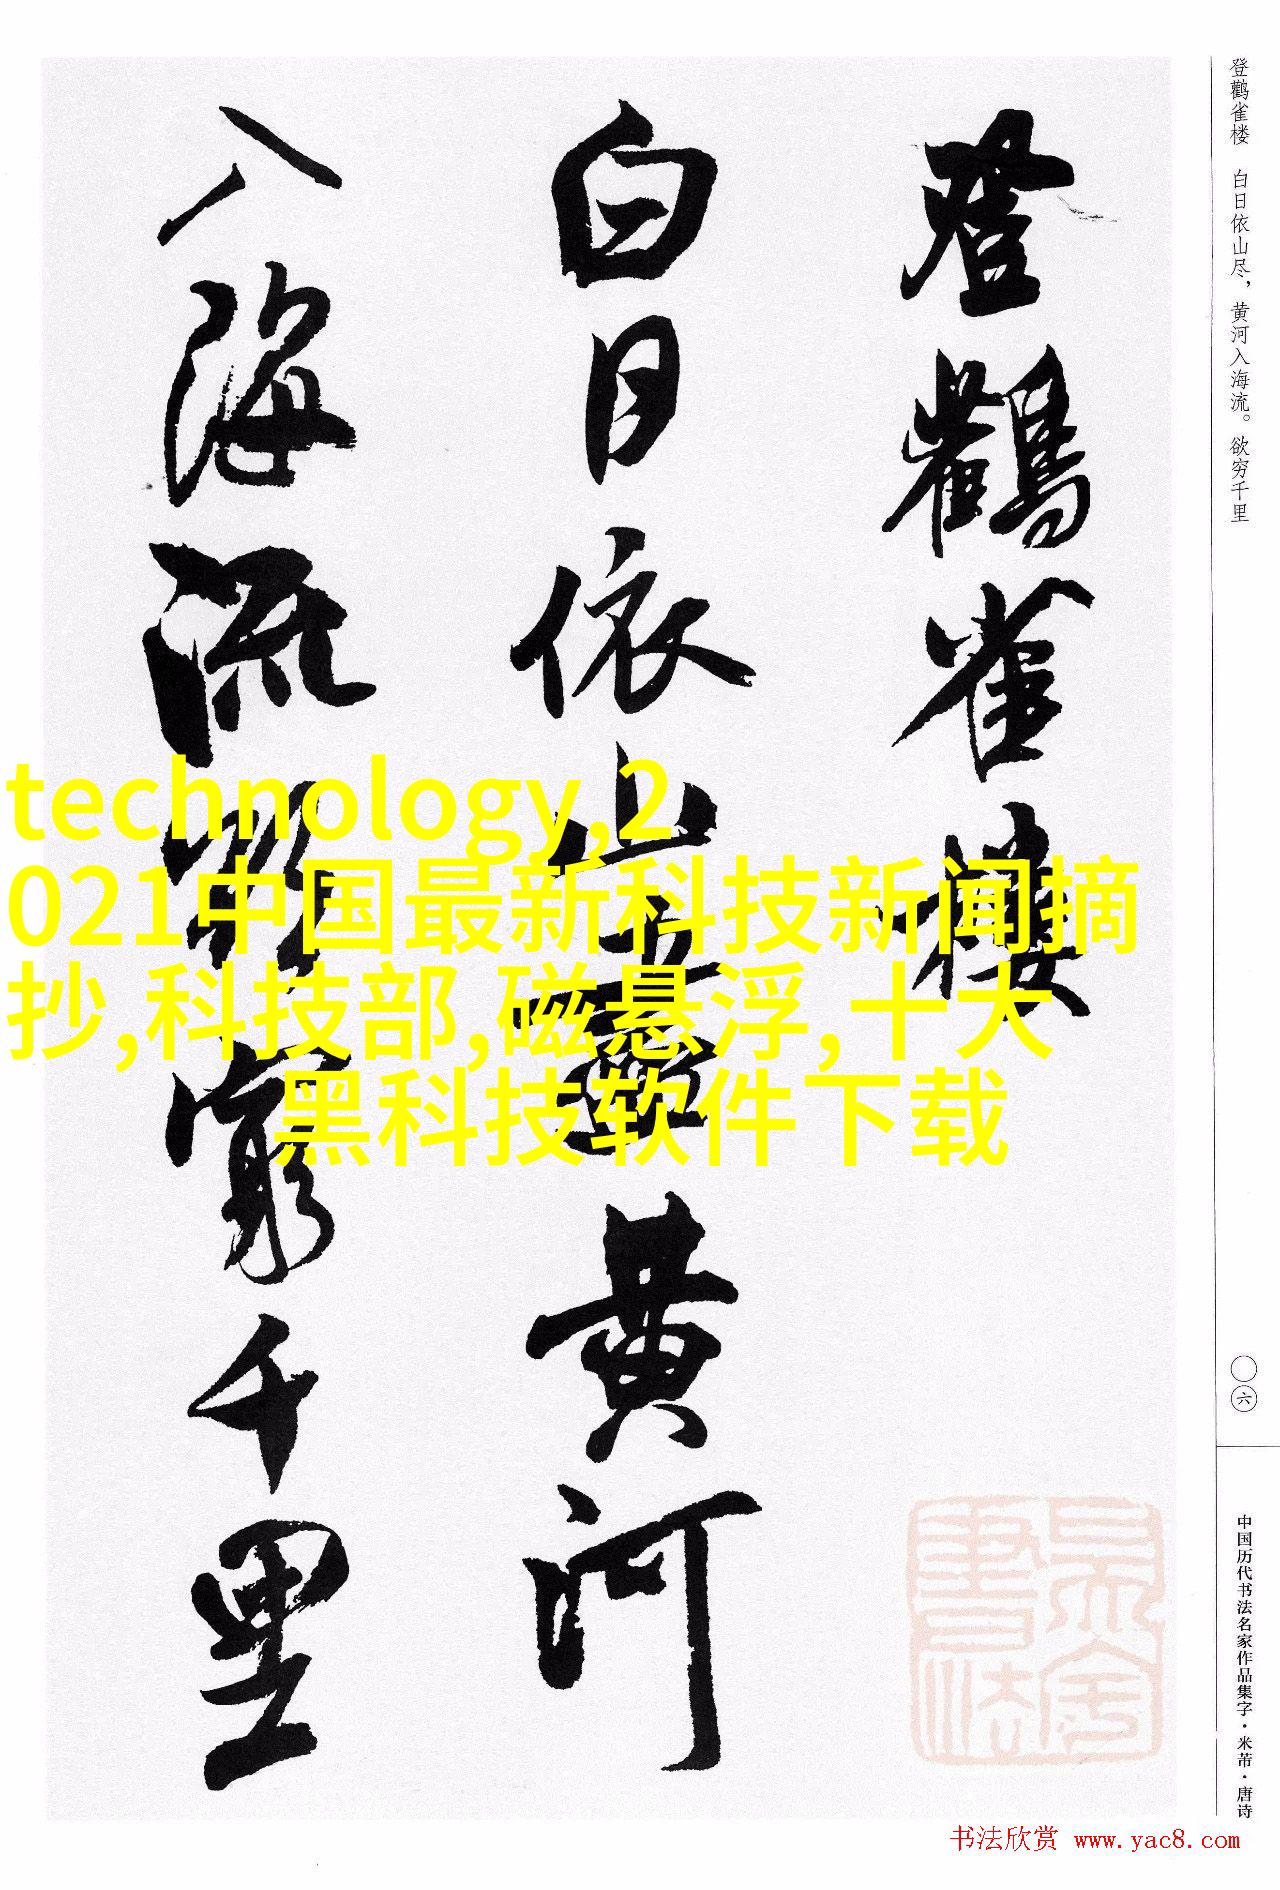 登鹳雀楼 白日依山尽，黄河入海流。欲穷千里
登鸛雀樓
白日依山盡黄河
入海流欲窮千里
technology,2
021中国最新科技新闻摘
抄,科技部,磁悬浮,十大
黑科技软件下载
六
中国历代书法名家作品集字·米芾·唐诗
书法欣赏 www.yac8.com